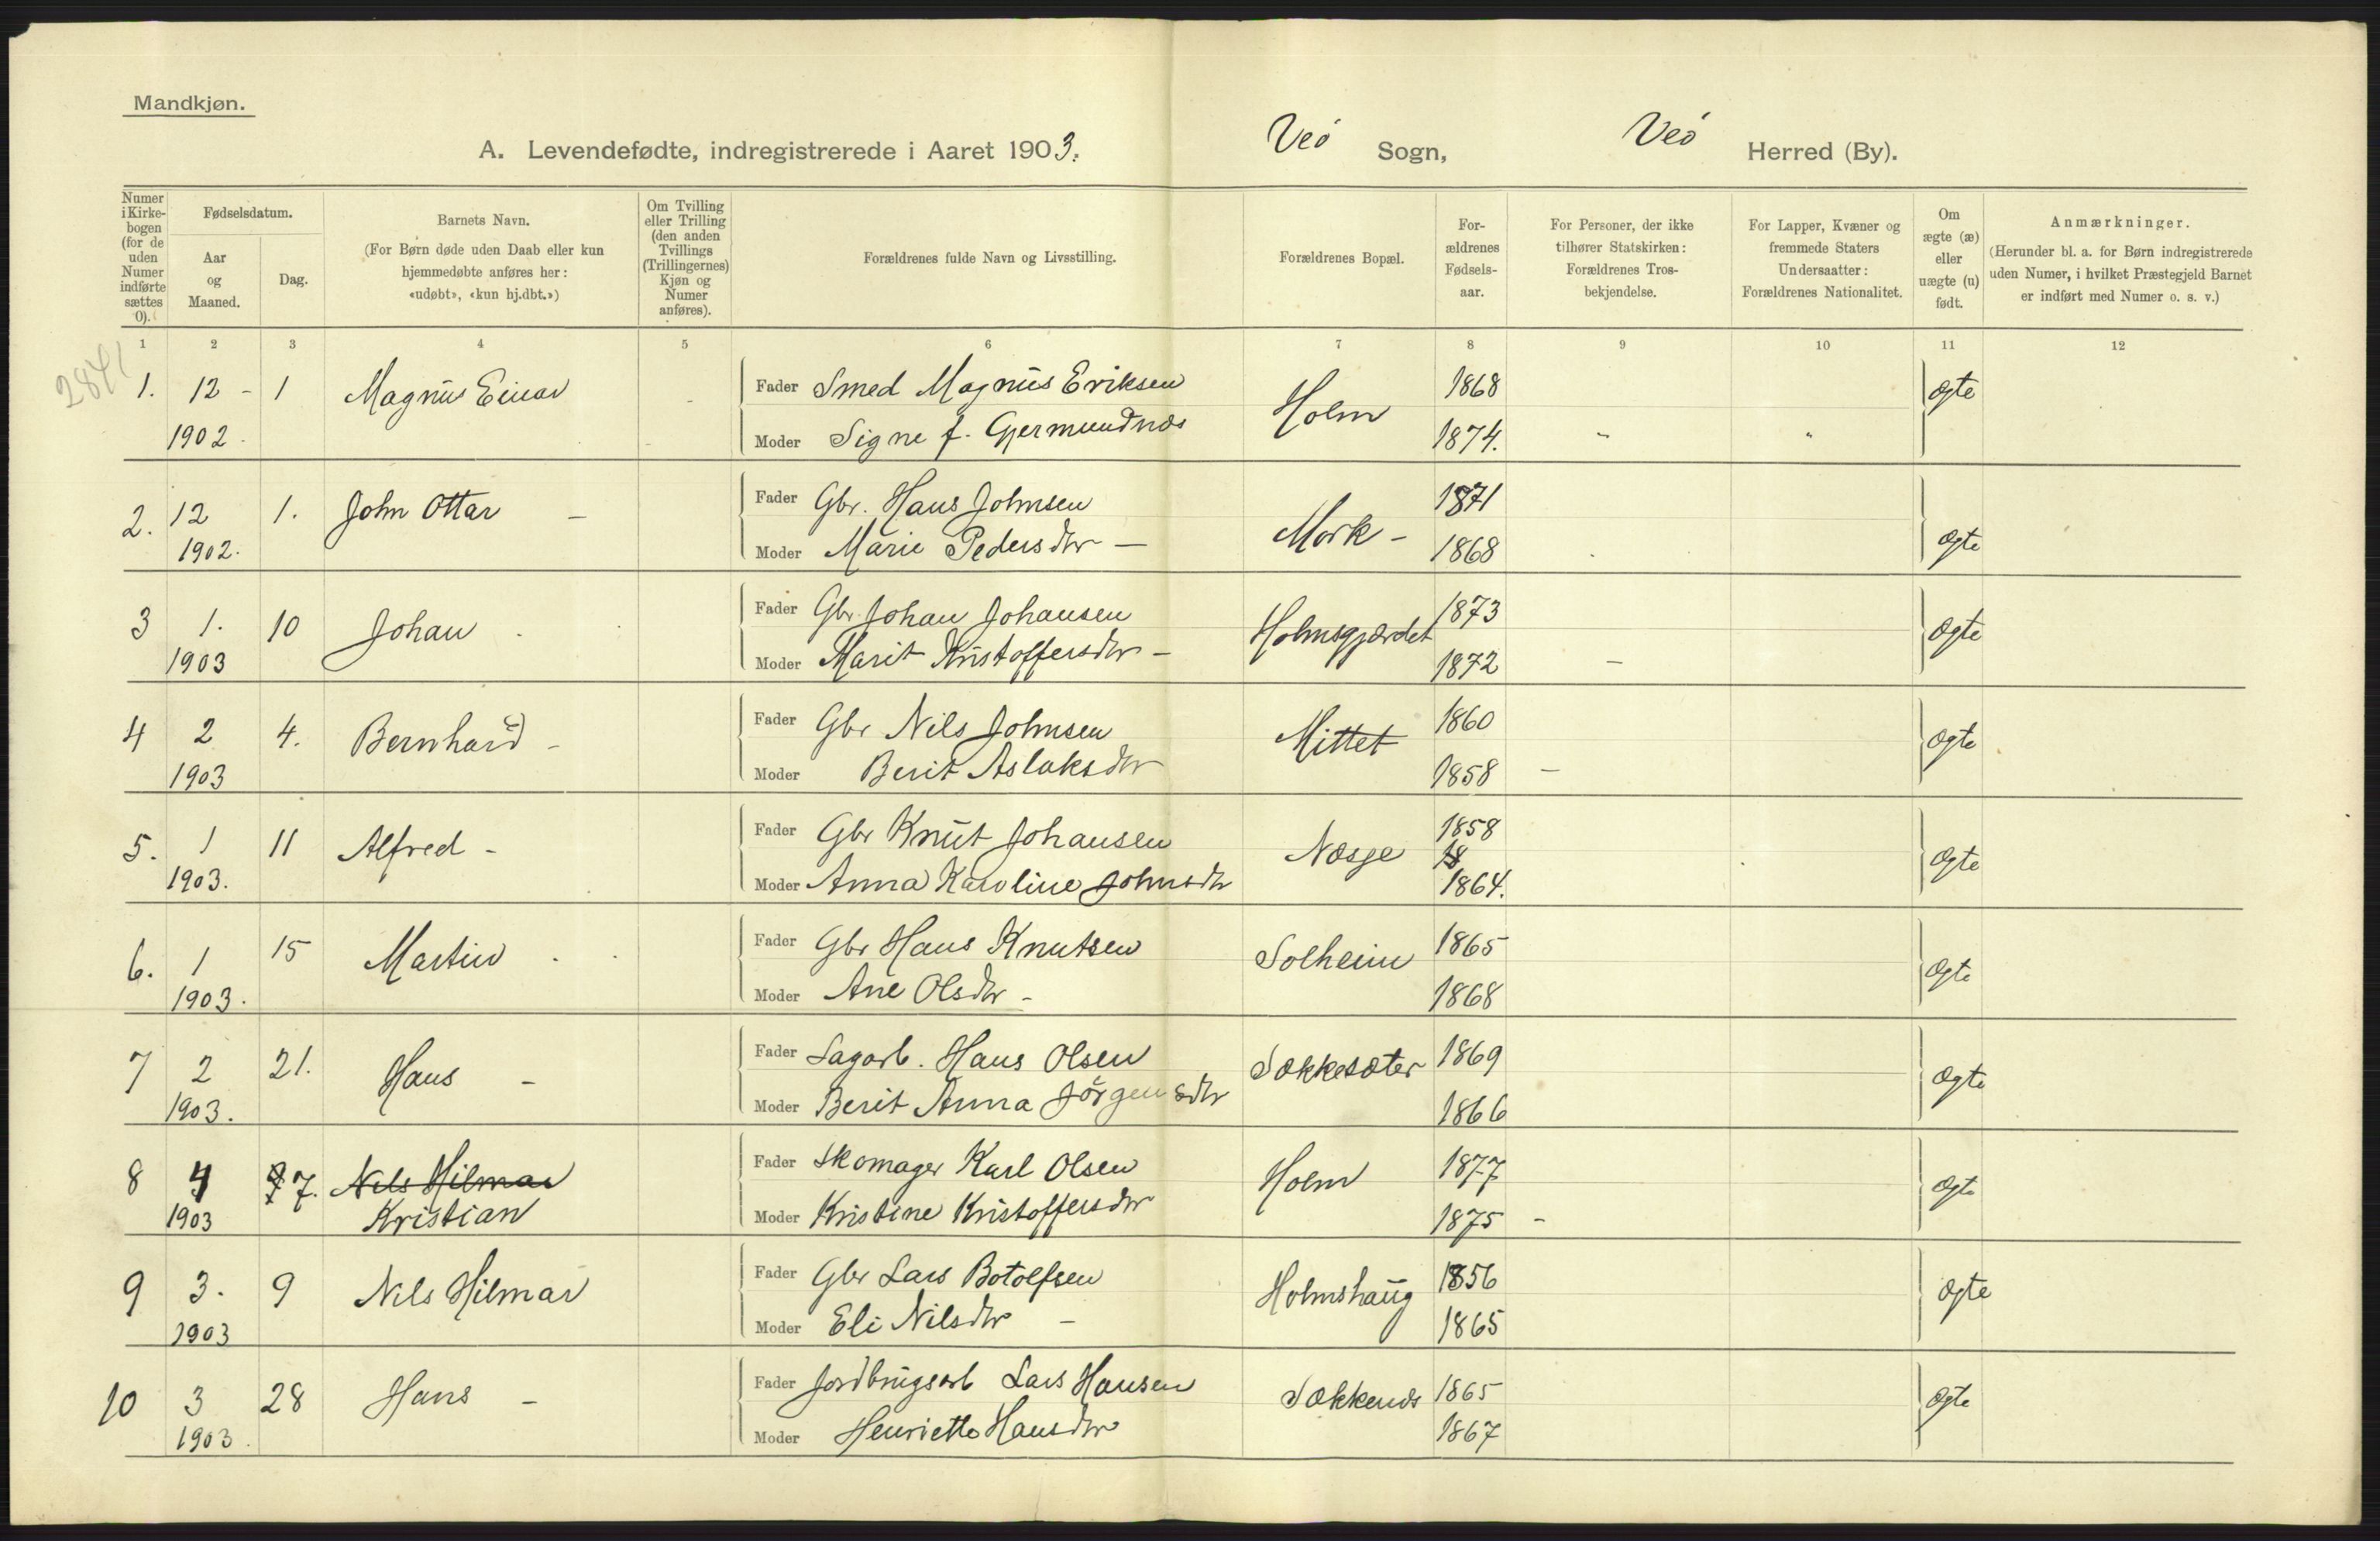 Mandkjøn.
A. Levendefødte, indregistrerede i Aaret 1903. Veø Sogn, Veø Herred (By).
Numer i Kirkebogen (for de uden Numer indførte sættes 0).
Fødselsdatum.
Aar og Maaned.
Dag.
Barnets Navn.
(For Børn døde uden Daab eller kun hjemmedøbte anføres her: «udøbt», «kun hj.dbt.»)
Om Tvilling eller Trilling (den anden Tvillings (Trillingernes) Kjøn og Numer anføres).
Forældrenes fulde Navn og Livsstilling.
Forældrenes Bopæl.
Forældrenes Fødselsaar.
For Personer, der ikke tilhører Statskirken: Forældrenes Trosbekjendelse.
For Lapper, Kvæner og fremmede Staters Undersaatter: Forældrenes Nationalitet.
Om ægte (æ) eller uægte (u) født.
Anmærkninger.
(Herunder bl. a. for Børn indregistrerede uden Numer, i hvilket Præstegjeld Barnet er indført med Numer o. s. v.)
1 2 3 4 5 6 7 8 9 10 11 12
2841
1. 12 - 1 Magnus Einar - Fader Smed Magnus Eriksen Holm 1868 ægte
1902. Moder Signe f. Gjermundnæs 1874.
2. 12 1. John Ottar - Fader Gbr. Hans Johnsen Mork - 1871 ægte
1902. Moder Marie Pedersdtr - 1868
3 1. 10 Johan Fader Gbr. Johan Johansen Holmsgjærdet 1873 ægte
1903 Moder Marit Kristoffersdtr - 1872 -
4 2 4. Bernhard - Fader Gbr Nils Johnsen Mittet 1860 ægte
1903 Moder Berit Aslaksdtr 1858 -
5. 1 11 Alfred - Fader Gbr Knut Johansen Næsje 1858 ægte
18
1903. Moder Anna Karoline Johnsdtr 1864.
6. 1 15 Martin Fader Gbr Hans Knutsen Solheim 1865 ægte
1903. Moder Ane Olsdtr - 1868
7 2 21. Hans - Fader Sagarb. Hans Olsen Sækkesæter 1869 ægte
1903. Moder Berit Anna Jørgensdtr 1866
8 4 7. Nils Hilmar Fader Skomager Karl Olsen Holm 1877 ægte
1903 Kristian Moder Kristine Kristoffersdtr 1875 -
9 3. 9 Nils Hilmar Fader Gbr Lars Botolfsen Holmshaug 1856 ægte
1903 Moder Eli Nilsdtr - 1865
10 3 28 Hans - Fader Jordbrugsarb Lars Hansen Sækkenæs 1865 ægte
1903. Moder Henriette Hansdtr 1867